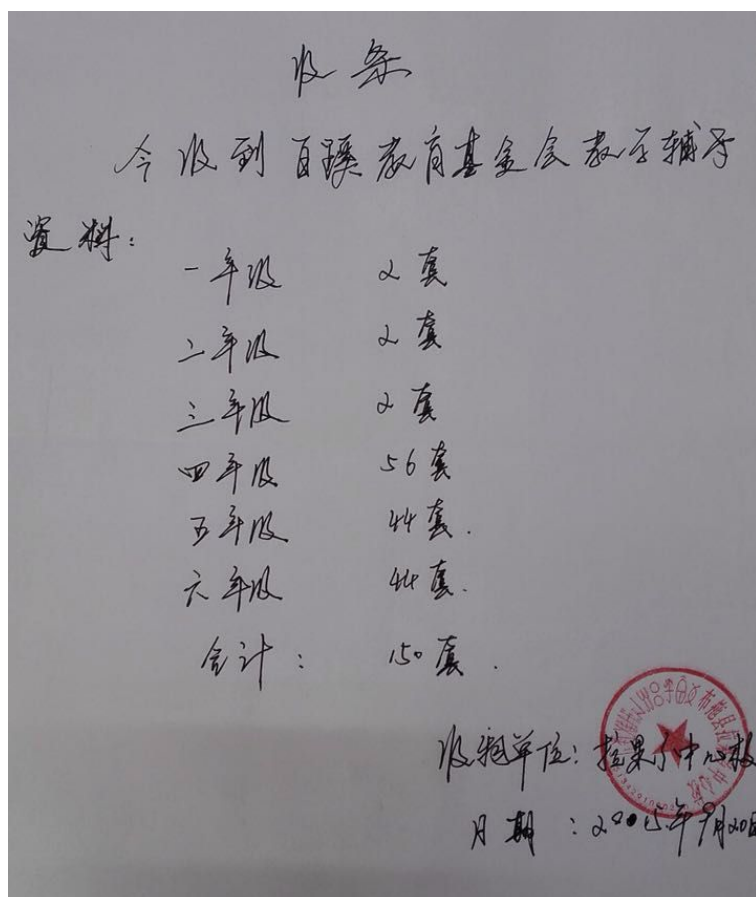 收条
今收到百蹊教育基金会教学辅导
资料：
一年级 2套
二年级 2套
三年级 2套
四年级 56套
五年级 44套.
六年级 44套.
合计： 150套.
收捐单位：拉果乡中心校
月期：2015年9月20日
布拖县拉果乡中心校